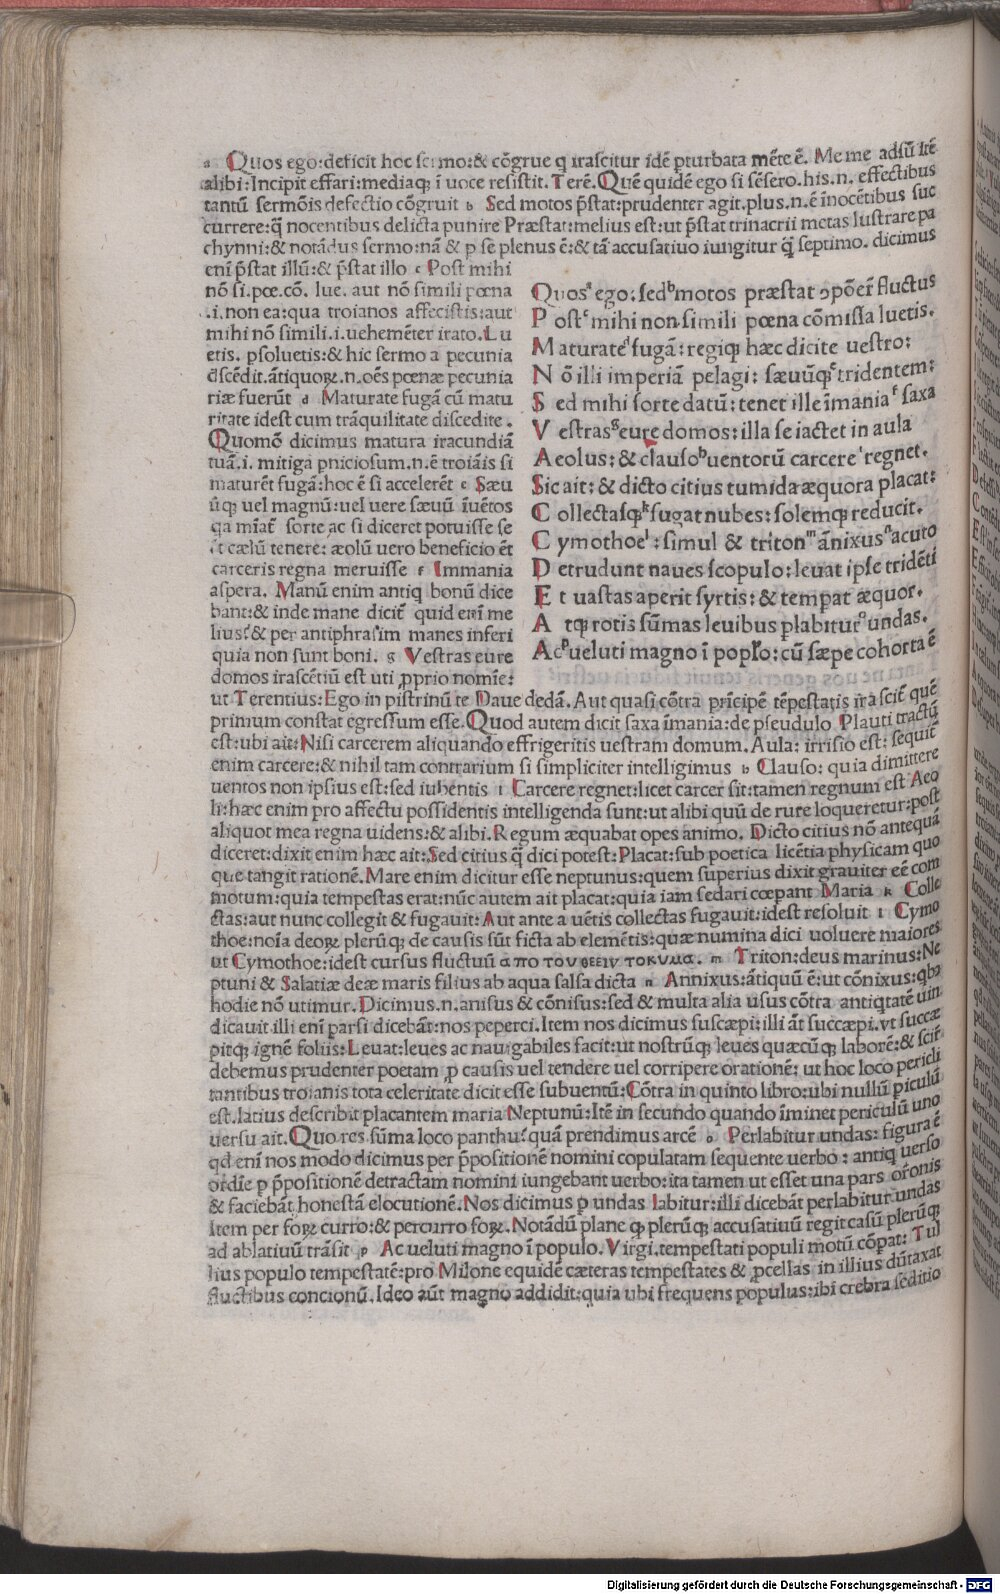 a Quos ego:deficit hoc sermo:& cõgrue q irascitur idẽ pturbata mẽte ẽ. Me me adsũ Itẽ
alibi:Incipit effari:mediaq; ĩ uoce resistit. Terẽ. Quẽ quidẽ ego si sẽsero. his. n. effectibus
tantũ sermõis defectio cõgruit b Sed motos p̃stat:prudenter agit. plus. n. ẽ inocẽtibus suc
currere:q̃ nocentibus delicta punire Præstat:melius est:ut p̃stat trinacrii metas lustrare pa
chynni:& notãdus sermo:nã & p se plenus ẽ:& tã accusatiuo iungitur q̃ septimo. dicimus
eni p̃stat illũ:& p̃stat illo c Post mihi
nõ si. pœ. cõ. lue. aut nõ simili pœna
.i. non ea:qua troianos affecistis:aut
mihi nõ simili. i. uehemẽter irato. Lu
etis. psoluetis:& hic sermo a pecunia
dscẽdit. ãtiquoꝝ. n. oẽs pœnæ pecunia
riæ fuerũt d Maturate fugã cũ matu
ritate idest cum trãquilitate discedite.
Quomõ dicimus matura iracundiã
tuã. i. mitiga pniciosum. n. ẽ troiãis si
maturẽt fugã:hoc ẽ si accelerẽt e Sæu
ũq; uel magnũ:uel uere sæuũ ĩuẽtos
qa mĩat̃ sorte ac si diceret potuisse se
et cælũ tenere: æolũ uero beneficio ẽt
carceris regna meruisse f Immania
aspera. Manũ enim antiq bonũ dice
bant:& inde mane dicit̃ quid eni me
lius? & per antiphrasim manes inferi
quia non sunt boni. g Vestras eure
domos irascẽtiũ est uti p̱prio nomĩe:
Quosᵃ ego: sedᵇ motos præstat ↄpõer̃ fluctus
P ostᶜ mihi non simili pœna cõmissa luetis.
M aturateᵈ fugã: regiq; hæc dicite uestro:
N õ illi imperiã pelagi: sæuũq;ᵉ tridentem:
S ed mihi sorte datũ: tenet ille ĩmaniaᶠ saxa
V estrasᵍ eure domos: illa se iactet in aula
A eolus: & clausoʰ uentorũ carcereⁱ regnet.
Sic ait: & dicto citius tumida æquora placat:
C ollectasq;ᵏ fugat nubes: solemq; reducit.
C ymothoeˡ: simul & tritonᵐ ãnixusⁿ acuto
D etrudunt naues scopulo: leuat ipse tridẽti
E t uastas aperit syrtis: & tempat æquor.
A tq; rotis sũmas leuibus perlabiturᵒ undas.
Acᵖ ueluti magno ĩ poplo: cũ sæpe cohorta ẽ
ut Terentius:Ego in pistrinũ te Daue dedã. Aut quasi cõtra prĩcipẽ tẽpestatis irascit̃ quẽ
primum constat egressum esse. Quod autem dicit saxa ĩmania:de pseudulo Plauti tractũ
est:ubi ait:Nisi carcerem aliquando effrigeritis uestram domum. Aula: irrisio est: sequit̃
enim carcere:& nihil tam contrarium si simpliciter intelligimus h Clauso: quia dimittere
uentos non ipsius est:sed iubentis i Carcere regnet:licet carcer sit:tamen regnum est Aeo
li:hæc enim pro affectu possidentis intelligenda sunt:ut alibi quũ de rure loqueretur:post
aliquot mea regna uidens:& alibi. Regum æquabat opes animo. Dicto citius nõ antequã
diceret:dixit enim hæc ait:Sed citius q̃ dici potest:Placat:sub poetica licẽtia physicam quo
que tangit rationẽ. Mare enim dicitur esse neptunus:quem superius dixit grauiter eẽ com
motum:quia tempestas erat:nũc autem ait placat:quia iam sedari cœpant Maria k Colle
ctas:aut nunc collegit & fugauit: Aut ante a uẽtis collectas fugauit:idest resoluit l Cymo
thoe:noĩa deoꝝ plerũq; de causis sũt ficta ab elemẽtis:quæ numina dici uoluere maiores
ut Cymothoe:idest cursus fluctuũ απο του θεειν τοκυμα. m Triton:deus marinus:Ne
ptuni & Salatiæ deæ maris filius ab aqua salsa dicta n Annixus:ãtiquũ ẽ:ut cõnixus:qbꝰ
hodie nõ utimur. Dicimus. n. anisus & cõnisus:sed & multa alia usus cõtra antiqtatẽ uin
dicauit illi eni parsi dicebãt:nos peperci. Item nos dicimus suscæpi:illi ãt succæpi. vt succæ
pitq; ignẽ foliis:Leuat:leues ac nauigabiles facit:ut nostrũq; leues quæcũq; laborẽ:& scit̃
debemus prudenter poetam p̱ causis uel tendere uel corripere orationẽ: ut hoc loco pericli
tantibus troianis tota celeritate dicit esse subuentũ:Cõtra in quinto libro:ubi nullũ piculũ
est. latius describit placantem maria Neptunũ:Itẽ in secundo quando ĩminet periculũ uno
uersu ait. Quo res sũma loco panthu? quã prendimus arcẽ o Perlabitur undas: figura ẽ
qd eni nos modo dicimus per p̃positionẽ nomini copulatam sequente uerbo: antiq uerso
ordĩe p p̃positionẽ detractam nomini iungebant uerbo:ita tamen ut esset una pars oronis
& faciebãt honestã elocutionẽ. Nos dicimus p undas labitur:illi dicebãt perlabitur undas
Item per foꝝ curro:& percurro foꝝ. Notãdũ plane qp plerũq; accusatiuũ regit casũ plerũq;
ad ablatiuũ trãsit p Ac ueluti magno ĩ populo. Virgi. tempestati populi motũ cõpat: Tul
lius populo tempestatẽ:pro Milone equidẽ cæteras tempestates & p̱cellas in illius dũtaxat
fluctibus concionũ. Ideo aũt magno addidit:quia ubi frequens populus:ibi crebra seditio
Digitalisierung gefördert durch die Deutsche Forschungsgemeinschaft - DFG